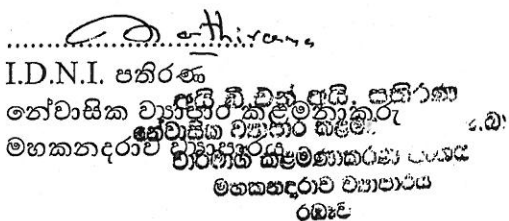 I.D.N.I. පතිරණ
නේවාසික ව්‍යාපාර කළමනාකරු
මහකනදරාව ව්‍යාපාරය
අයි.ඩී.එන්.අයි. පතිරණ
නේවාසික ව්‍යාපාර
වාරිමාර්ග කළමණාකරණ
මහකනදරාව ව්‍යාපාරය